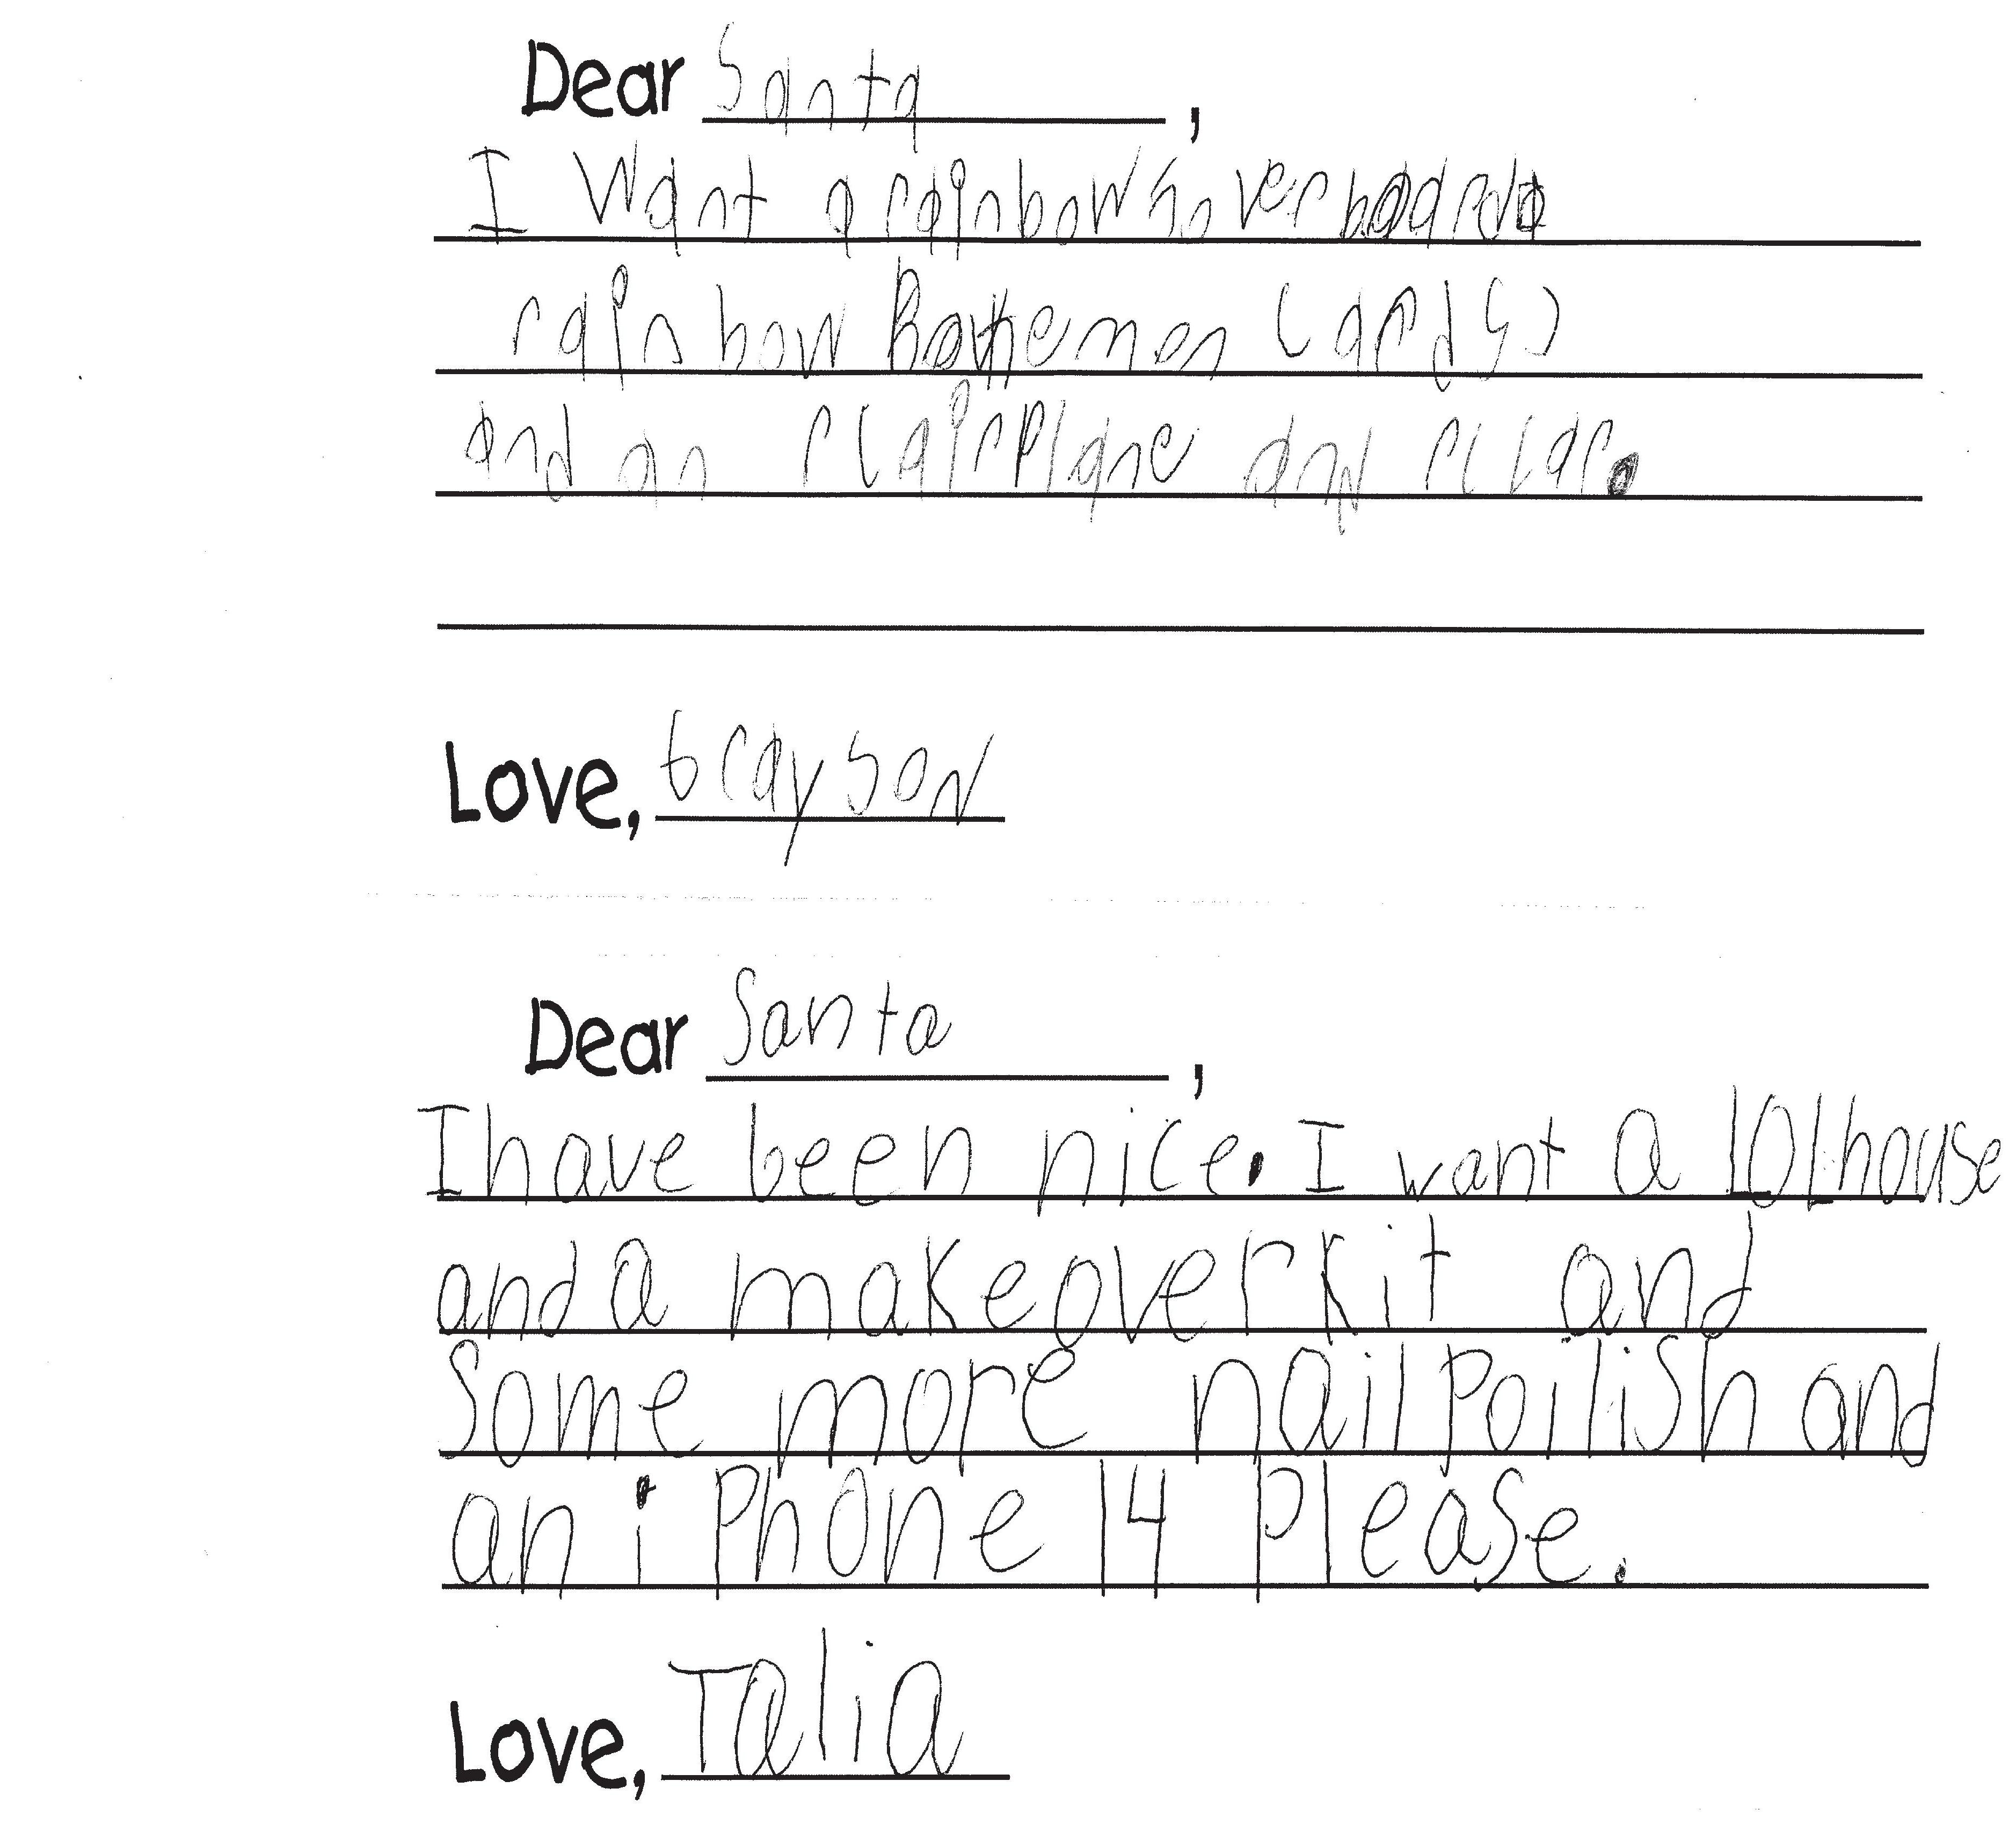 Dear Santa,
I Want a rainbow hoverboard a
rainbow Pokemon cards
and an rc airplane and rc car.
Love, Grayson
Dear Santa,
I have been nice. I want a lOL house
and a makeover kit and
Some more nail Poilish and
an iPhone 14 Please.
Love, Talia